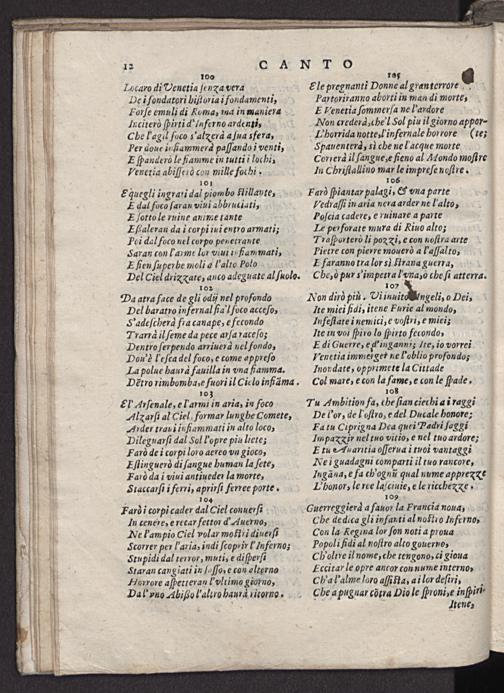 12
CANTO
100
Locaro di Venetia senza vera
De i fondatori historia i fondamenti,
Forse emuli di Roma, ma in maniera
Inciterò spirti d'Inferno ardenti,
Che l'agil foco s'alzerà a sua sfera,
Per doue infiammerà passando i venti,
E spanderò le fiamme in tutti i lochi,
Venetia abisserò con mille fochi.
101
E quegli ingrati dal piombo stillante,
E dal foco saran viui abbruciati,
E sotto le ruine anime tante
Essaleran da i corpi iui entro armati;
Poi dal foco nel corpo penetrante
Saran con l'arme lor viui infiammati,
E sien superbe moli d'alto Polo
Del Ciel drizzate, anco adeguate al suolo.
102
Da atra face de gli odij nel profondo
Del baratro infernal sia'l foco acceso,
S'adescherà fra canape, e secondo
Trarrà il seme da pece arsa reso;
Dentro serpendo arriuerà nel fondo,
Dou'è l'esca del foco, e come appreso
La polue haurà fauilla in vna fiamma.
Dētro rimbomba, e fuori il Cielo infiāma.
103
E l'Arsenale, e l'armi in aria, in foco
Alzarsi al Ciel, formar lunghe Comete,
Arder traui infiammati in alto loco,
Dileguarsi dal Sol l'opre piu liete;
Farò de i corpi loro aereo vn gioco,
Estinguerò di sangue human la sete,
Farò da i viui antiueder la morte,
Staccarsi i ferri, aprirsi ferree porte.
104
Farò i corpi cader dal Ciel conuersi
In cenere, e recar fettor d'Auerno,
Ne l'ampio Ciel volar mostri diuersi
Scorrer per l'aria, indi scoprir l'Inferno;
Stupidi dal terror, muti, e dispersi
Staran cangiati in sasso, e con alterno
Horrore aspetteran l'vltimo giorno,
Da l'vno Abisso l'altro haurà ritorno.
105
E le pregnanti Donne al gran terrore
Partoriranno aborti in man di morte,
E Venetia sommersa ne l'ardore
Non crederà, che'l Sol piu il giorno appor-
L'horrida notte, l'infernale horrore (te;
Spauenterà, sì che ne l'acque morte
Correrà il sangue, e sieno al Mondo mostre
In Christallino mar le imprese nostre.
106
Farò spiantar palagi, & vna parte
Vedrassi in aria nera arder ne l'alto,
Poscia cadere, e ruinare a parte
Le perforate mura di Riuo alto;
Trasporterò li pozzi, e con nostra arte
Pietre con pietre mouerò a l'assalto,
E faranno tra lor sì strana guerra,
Che, ò pur s'impetra l'vna, ò che si atterra.
107
Non dirò più. Vi inuito Angeli, o Dei,
Ite mici fidi, itene Furie al mondo,
Infestate i nemici, e vostri, e miei;
Ite in voi spiro lo spirto fecondo,
E di Guerre, e d'inganni; Ite, io vorrei
Venetia immerger ne l'oblio profondo;
Inondate, opprimete la Cittade
Col mare, e con la fame, e con le spade.
108
Tu Ambition fa, che sian ciechi a i raggi
De l'or, de l'ostro, e del Ducale honore;
Fa tu Ciprigna Dea quei Padri saggi
Impazzir nel tuo vitio, e nel tuo ardore;
E tu Auaritia osserua i tuoi vantaggi
Ne i guadagni comparti il tuo rancore,
Ingāna, e fa ch'ognū qual nume apprezze
L'honor, le ree lasciuie, e le ricchezze.
109
Guerreggierà a fauor la Francia noua,
Che dedica gli infanti al nostro Inferno,
Con la Regina lor son noti a proua
Popoli fidi al nostro alto gouerno,
Ch'oltre il nome, che tengono, ci gioua
Eccitar le opre ancor con nume interno,
Ch'a l'alme loro assista, a i lor desiri,
Che a pugnar cōtra Dio le sproni, e inspiri.
Itene,